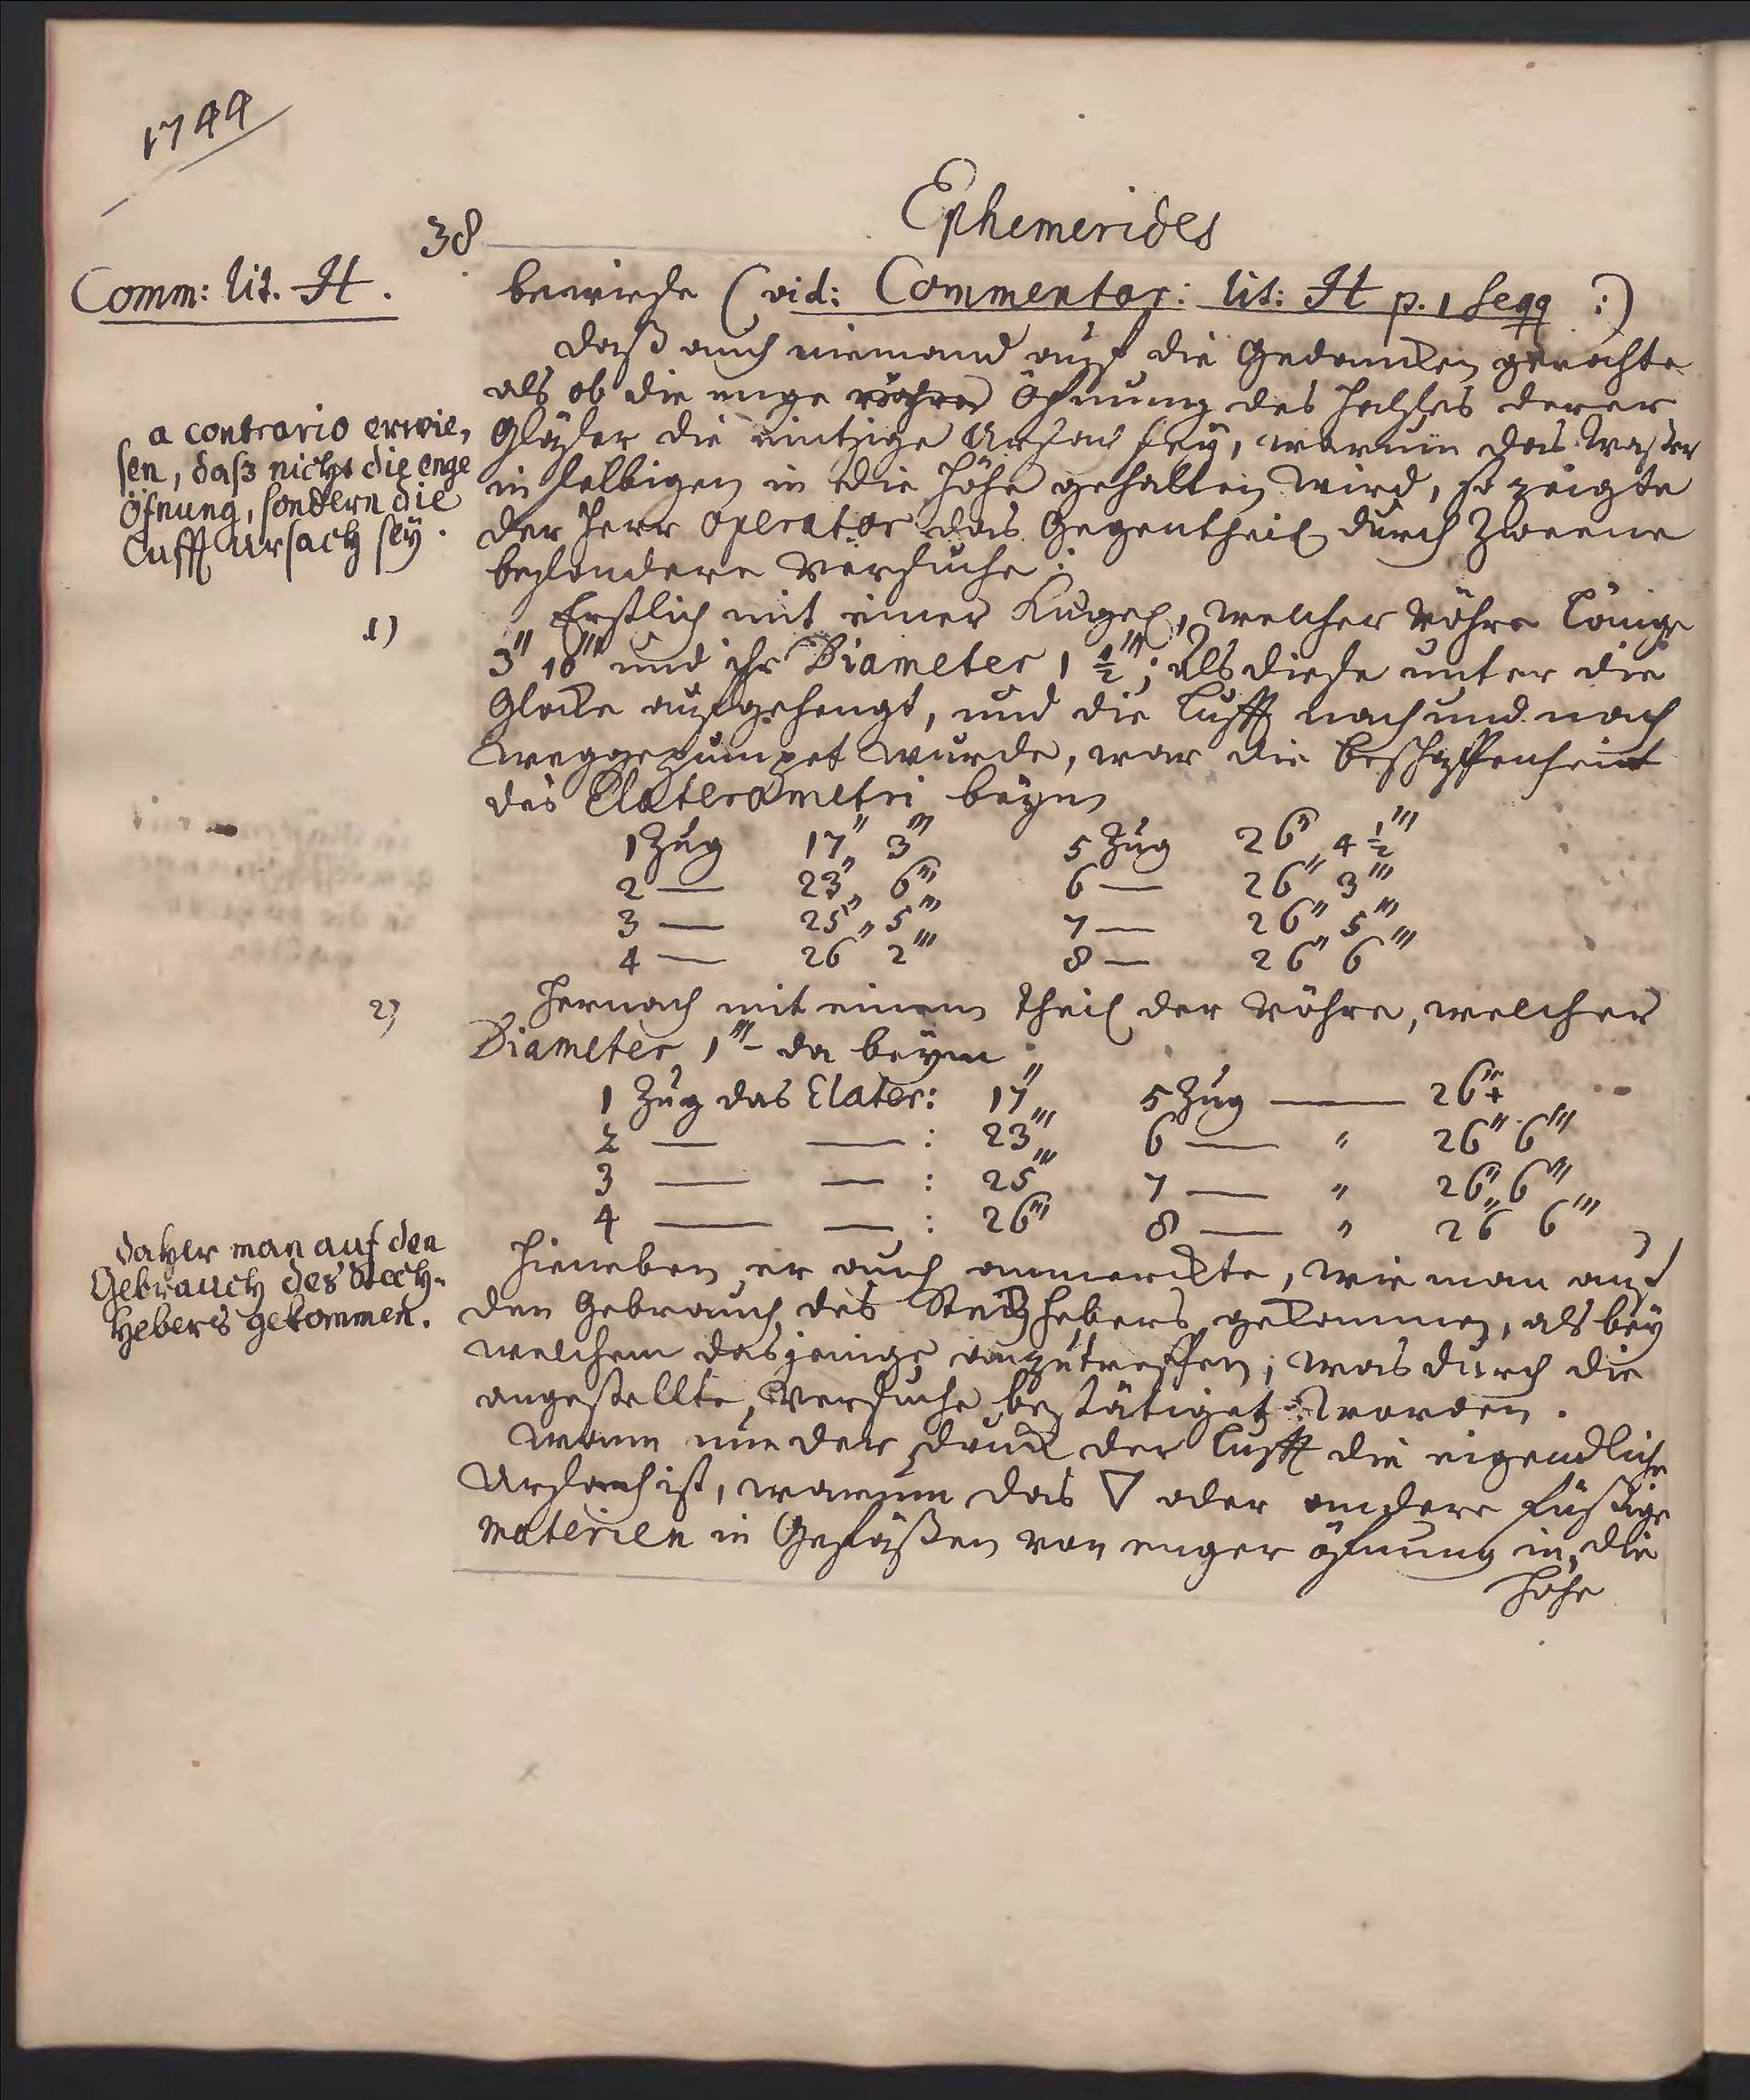 1744
38
Ephemerides
Comm: lit. H.
bewiese (vid: Commentar: lit: H p. 1 seqq :)
Daß auch niemand auf die Gedancken gerathe
als ob die enge Röhre Öfnung des Halses derer
Gläser die eintzige Ursach sey, warum das Waßer
in selbigen in die Höhe gehalten wird, so zeigte
der Herr Operator das Gegentheil durch Zweene
besondere Versuche:
a contrario erwie,
sen, daß nicht die enge
Öfnung, sondern die
Lufft Ursach sey.
1)
Erstlich mit einer Kugel, welcher Röhre Länge
3'' 10''' und ihr Diameter 1 1/2'''; als diese unter die
Glocke aufgehengt, und die Lufft nach und nach
weggepumpet wurde, war die Beschaffenheit
des Elaterometri beym
1 Zug 17'' 3''' 5 Zug 26'' 4 1/2'''
2 — 23'' 6''' 6 — 26'' 3'''
3 — 25'' 5''' 7 — 26'' 5'''
4 — 26 2''' 8 — 26'' 6'''
2)
Hernach mit einem Theil der Röhre, welcher
Diameter 1''' - da beym
1 Zug das Elater: 17'' 5 Zug — 26'' +
2 — — : 23''' 6 — " 26'' 6'''
3 — — : 25''' 7 — " 26'' 6'''
4 — — : 26''' 8 — " 26'' 6'''
daher man auf den
Gebrauch des Stech-
Hebers gekommen.
Hieneben er auch anmerckte, wie man auf
den Gebrauch des Stechhebers gekommen, als bey
welchem dasjenige anzutreffen, was durch die
angestellte Versuche bestätiget worden.
Wann nun der Druck der Lufft die eigendliche
Ursach ist, warum das ▽ oder andere flüßige
Materien in Gefäßen von enger Öfnung in die
Höhe